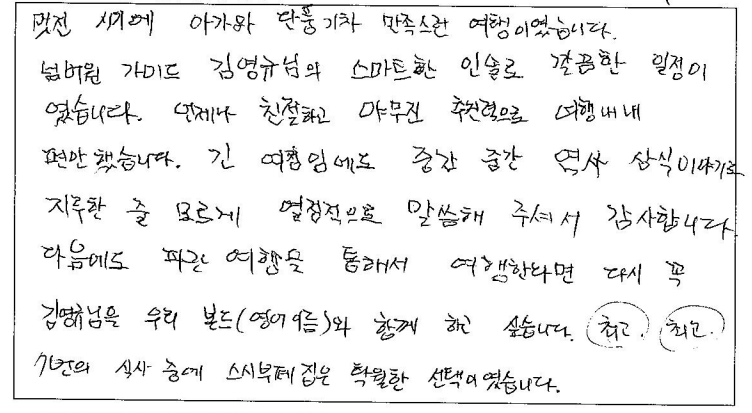 멋진 시기에 아가와 단풍기차 만족스런 여행이였습니다.
넘버원 가이드 김영규님의 스마트한 인솔로 깔끔한 일정이
였습니다. 언제나 친절하고 야무진 추진력으로 여행내내
편안했습니다. 긴 여행임에도 중간 중간 역사 상식이야기로
지루한 줄 모르게 열정적으로 말씀해 주셔서 감사합니다
다음에도 파란여행을 통해서 여행한다면 다시 꼭
김영규님을 우리 본드(영어이름)와 함께 하고 싶습니다. 최고. 최고.
7번의 식사 중에 스시부페집은 탁월한 선택이였습니다.